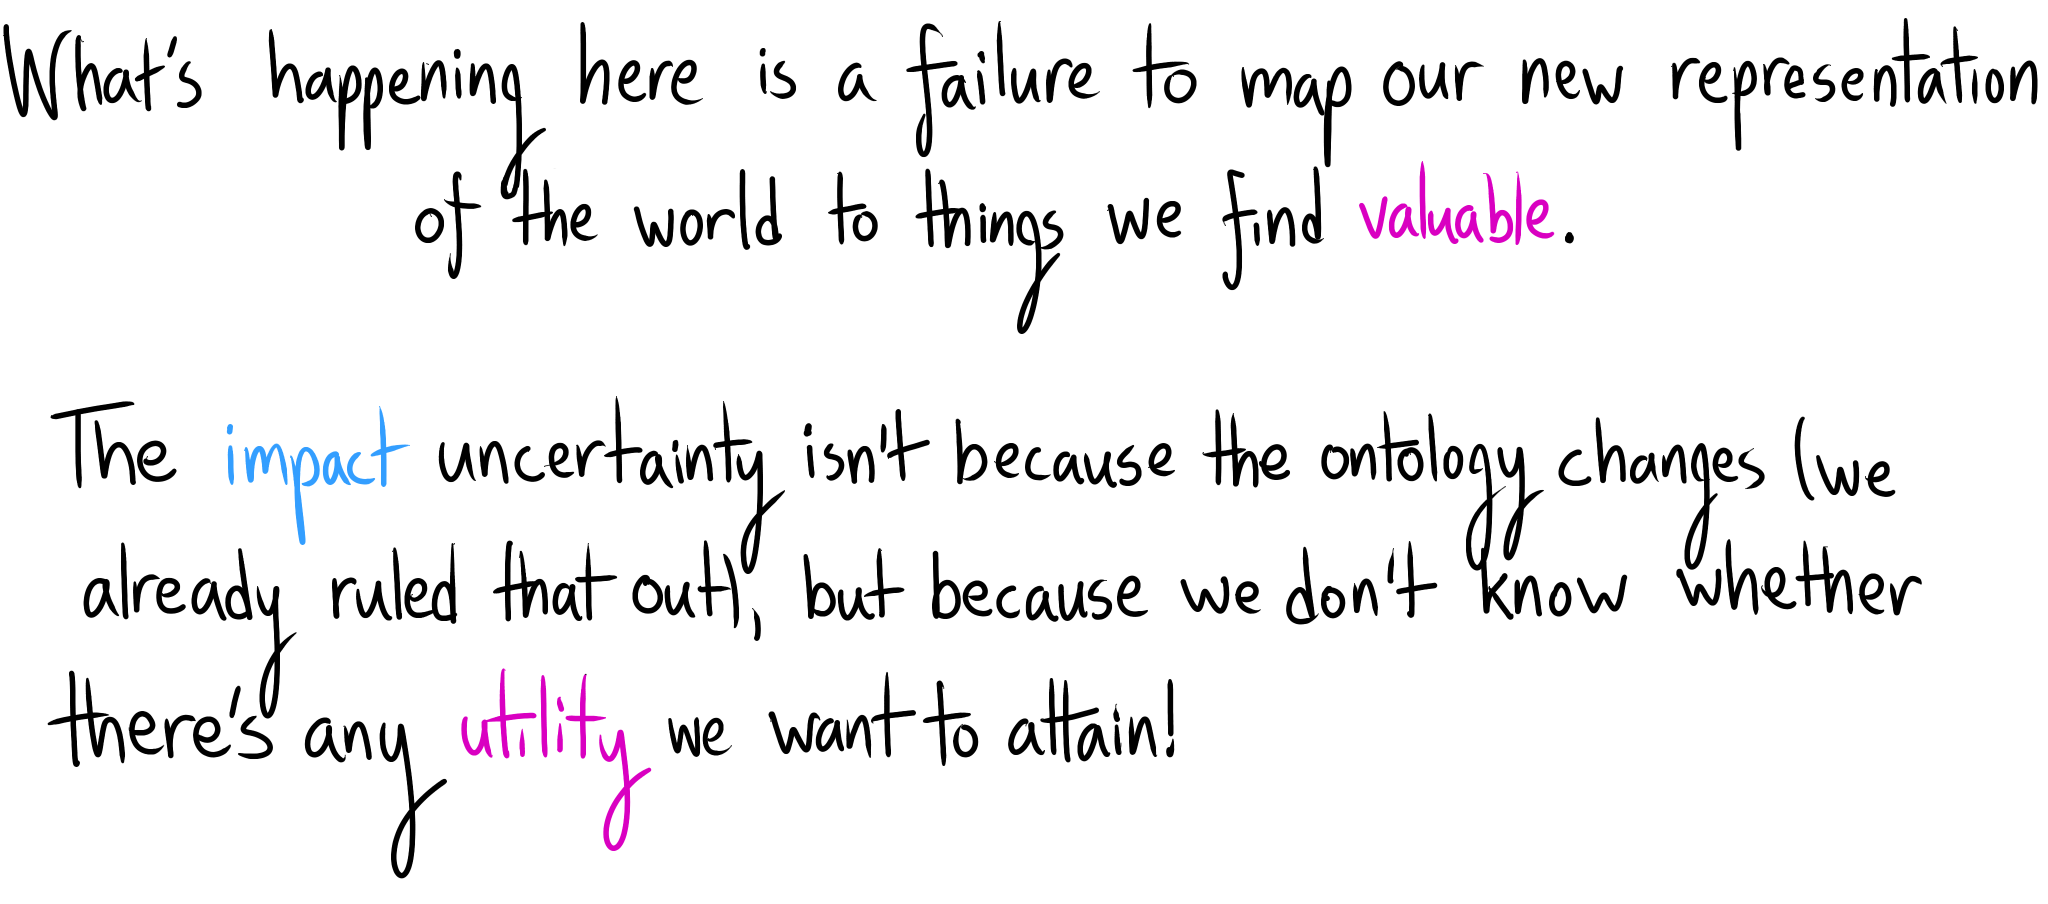 What's happening here is a failure to map our new representation
of the world to things we find valuable.
The impact uncertainty isn't because the ontology changes (we
already ruled that out), but because we don't know whether
there's any utility we want to attain!